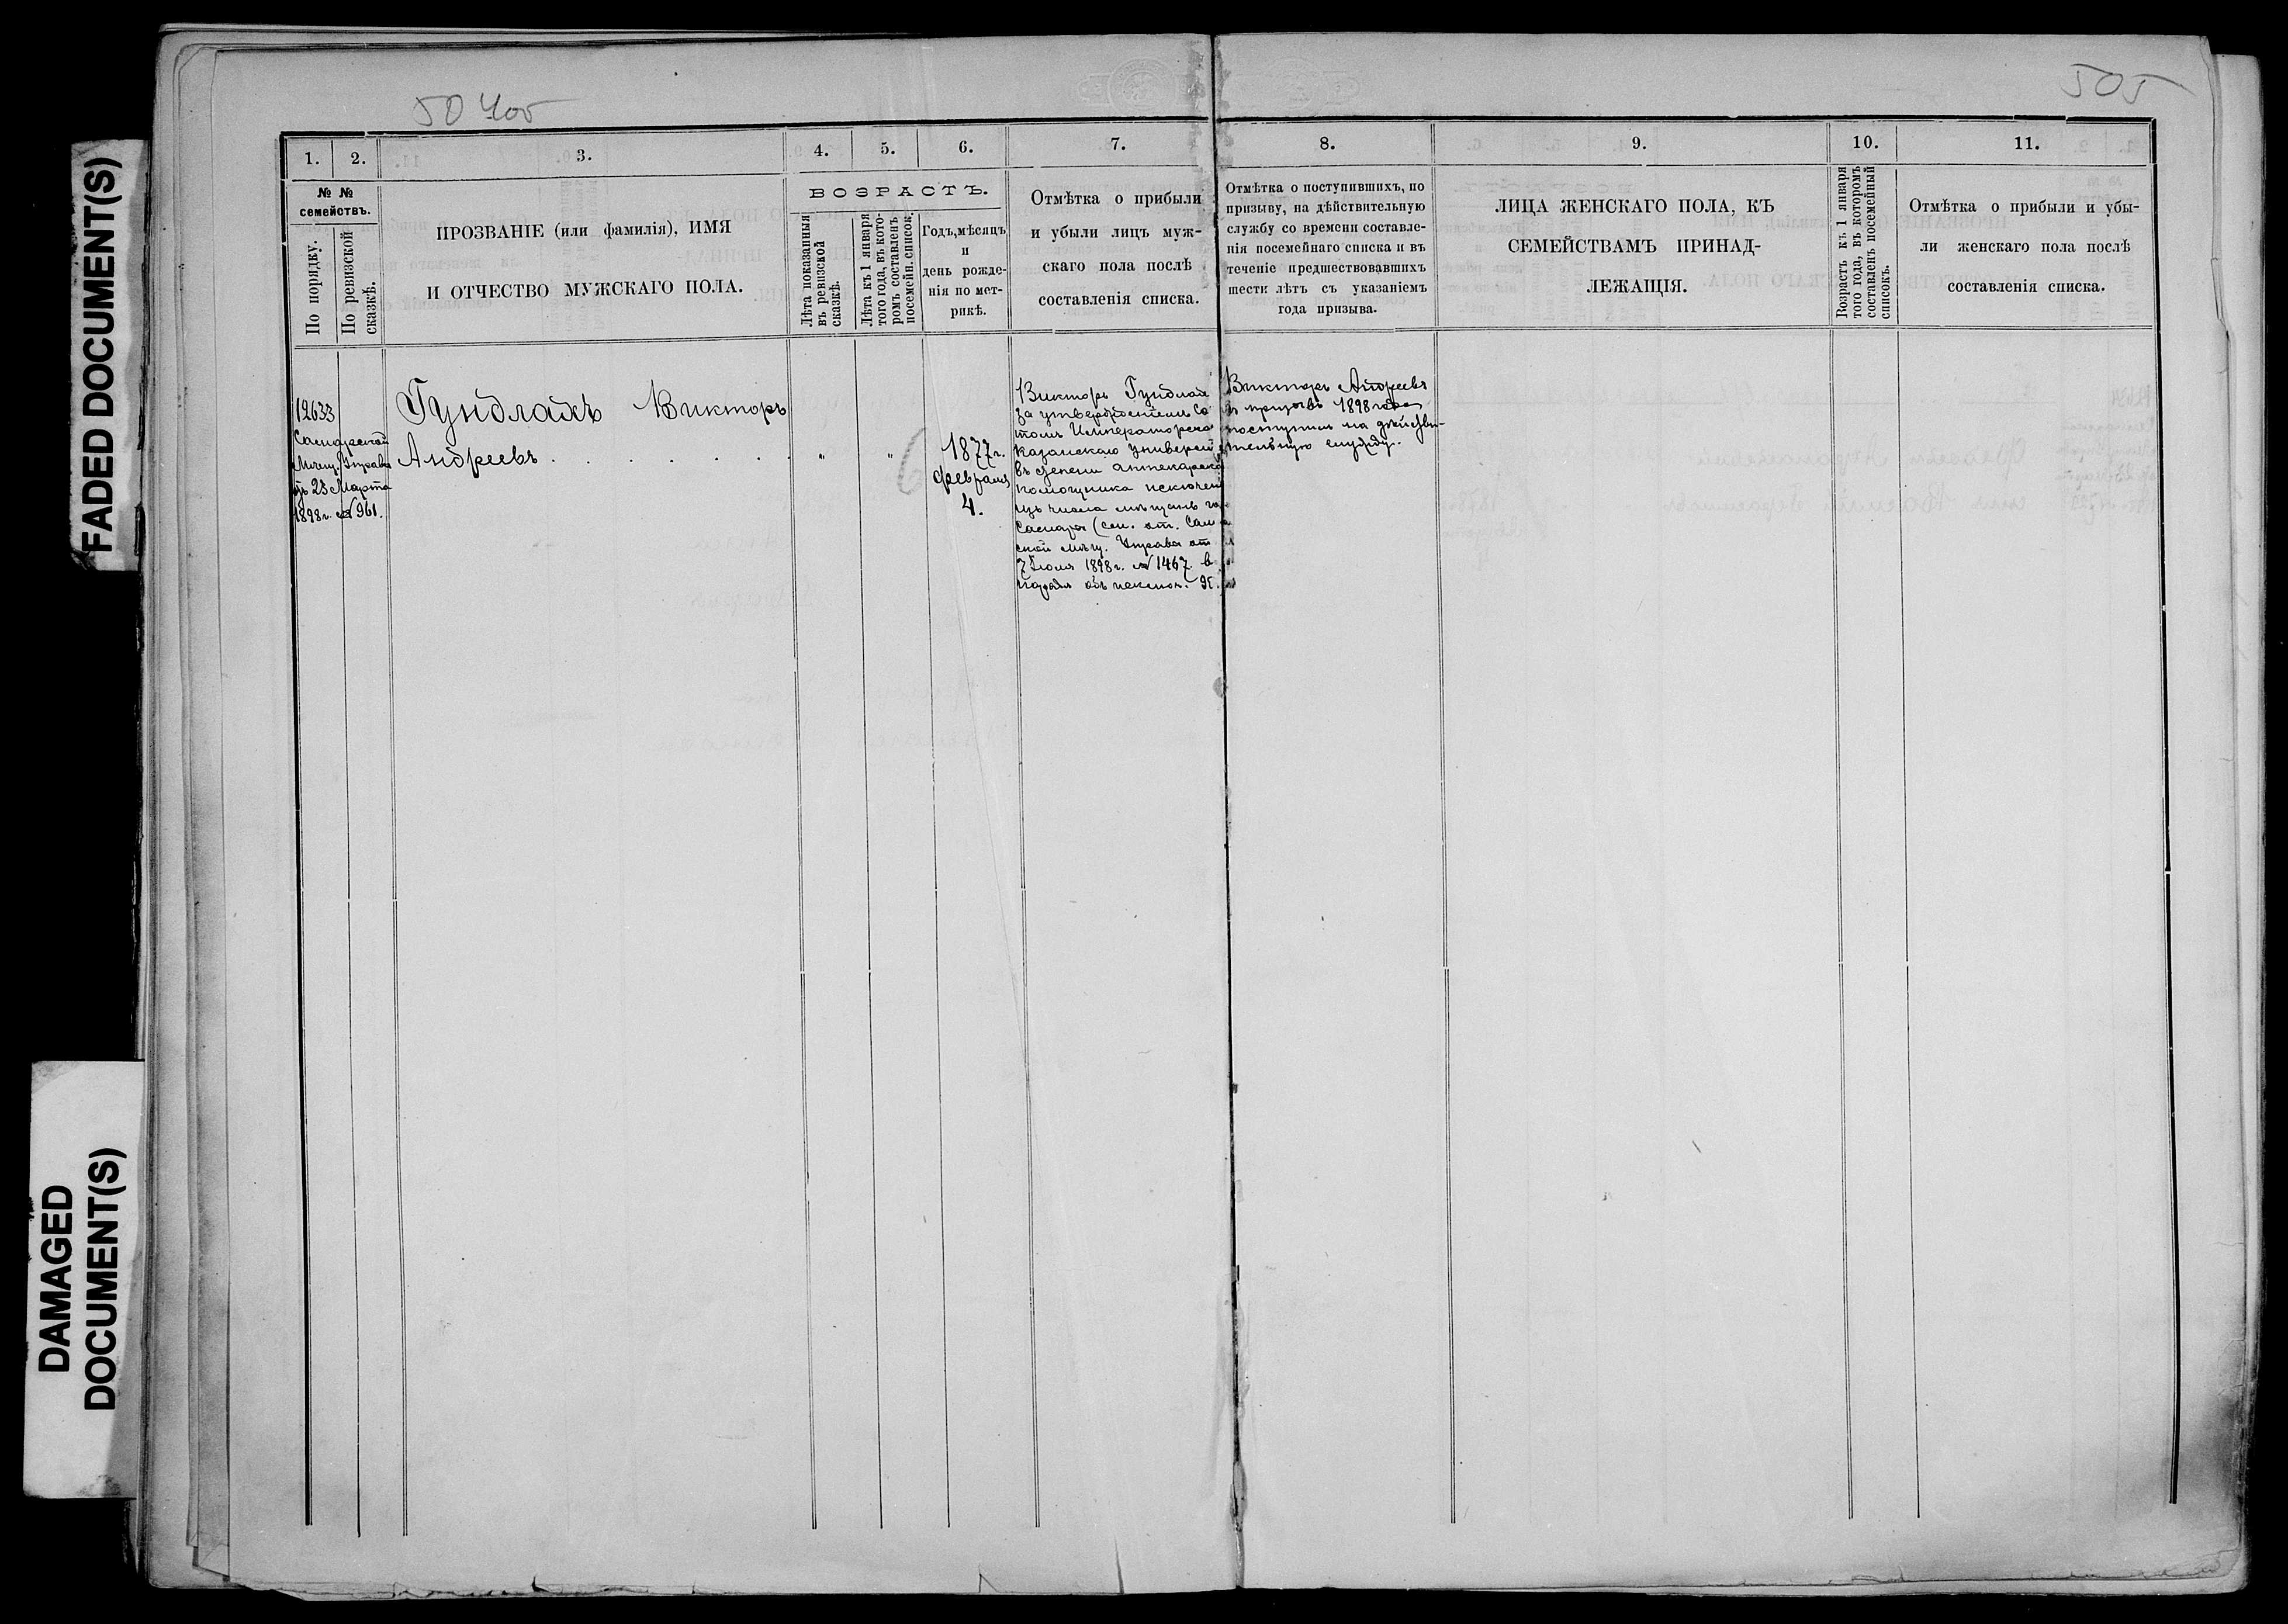 FADED DOCUMENT(S)
DAMAGED
DOCUMENT(S)
505
1.
2.
3.
4.
5.
6.
7.
8.
9.
10.
11.
№ №
семействъ.
По порядку.
По ревизской
сказкѣ.
ПРОЗВАНІЕ (или фамилія), ИМЯ
И ОТЧЕСТВО МУЖСКАГО ПОЛА.
ВОЗРАСТЪ.
Лѣта показанныя
въ ревизской
сказкѣ.
Лѣта къ 1 января
того года, въ кото-
ромъ составленъ
посемейн. списокъ.
Годъ, мѣсяцъ
и
день рожде-
нія по мет-
рикѣ.
Отмѣтка о прибыли
и убыли лицъ муж-
скаго пола послѣ
составленія списка.
Отмѣтка о поступившихъ, по
призыву, на дѣйствительную
службу со времени составле-
нія посемейнаго списка и въ
теченіе предшествовавшихъ
шести лѣтъ съ указаніемъ
года призыва.
ЛИЦА ЖЕНСКАГО ПОЛА, КЪ
СЕМЕЙСТВАМЪ ПРИНАД-
ЛЕЖАЩІЯ.
Возрастъ къ 1 января
того года, въ которомъ
составленъ посемейный
списокъ.
Отмѣтка о прибыли и убы-
ли женскаго пола послѣ
составленія списка.
12633
Самарской
Мѣщ. Управы
отъ 23 Марта
1898 г. № 961.
Гундлахъ Викторъ
Андреевъ
" "
1877 г.
Февраля
4.
Викторъ Гундлах
за утвержденіем Со
томъ Императорско
Казанскаго Университ
въ степени аптекарско
помощника исключен
изъ числа мѣщанъ го
Самары (сон. от. Сам
ской мѣщ. Управы от
7 Іюля 1898 г. № 1467
Викторъ Андреевъ
въ призывъ 1898 года
поступилъ на дѣйстви-
тельную службу.